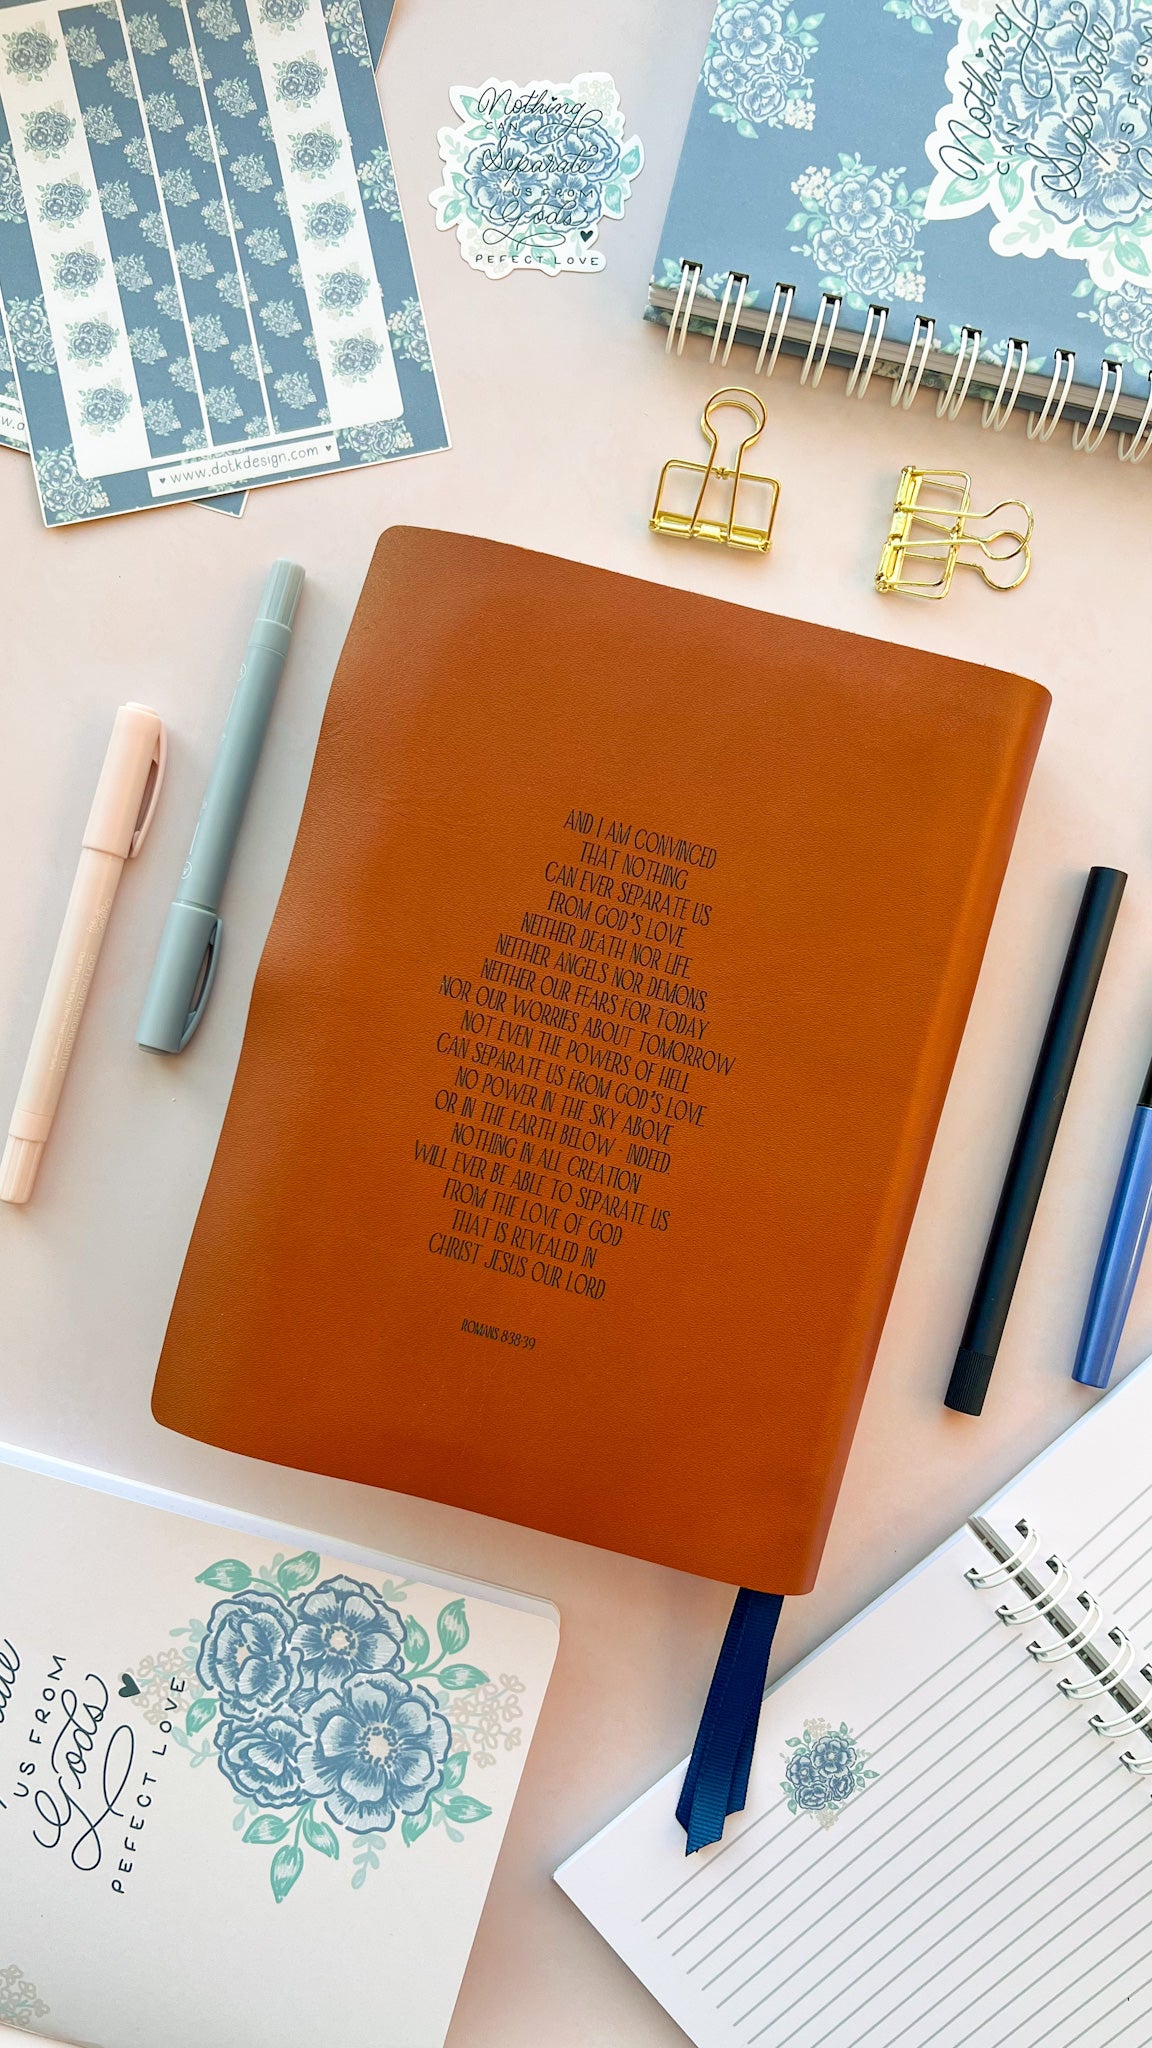 Nothing
CAN
Separate
US FROM
Gods
PEFECT LOVE
Nothing
CAN
Separate
US FROM
www.dotkdesign.com
AND I AM CONVINCED
THAT NOTHING
CAN EVER SEPARATE US
FROM GOD'S LOVE.
NEITHER DEATH NOR LIFE,
NEITHER ANGELS NOR DEMONS,
NEITHER OUR FEARS FOR TODAY
NOR OUR WORRIES ABOUT TOMORROW
NOT EVEN THE POWERS OF HELL
CAN SEPARATE US FROM GOD'S LOVE
NO POWER IN THE SKY ABOVE
OR IN THE EARTH BELOW - INDEED,
NOTHING IN ALL CREATION
WILL EVER BE ABLE TO SEPARATE US
FROM THE LOVE OF GOD
THAT IS REVEALED IN
CHRIST JESUS OUR LORD.
ROMANS 8:38-39
US FROM
Gods
PEFECT LOVE